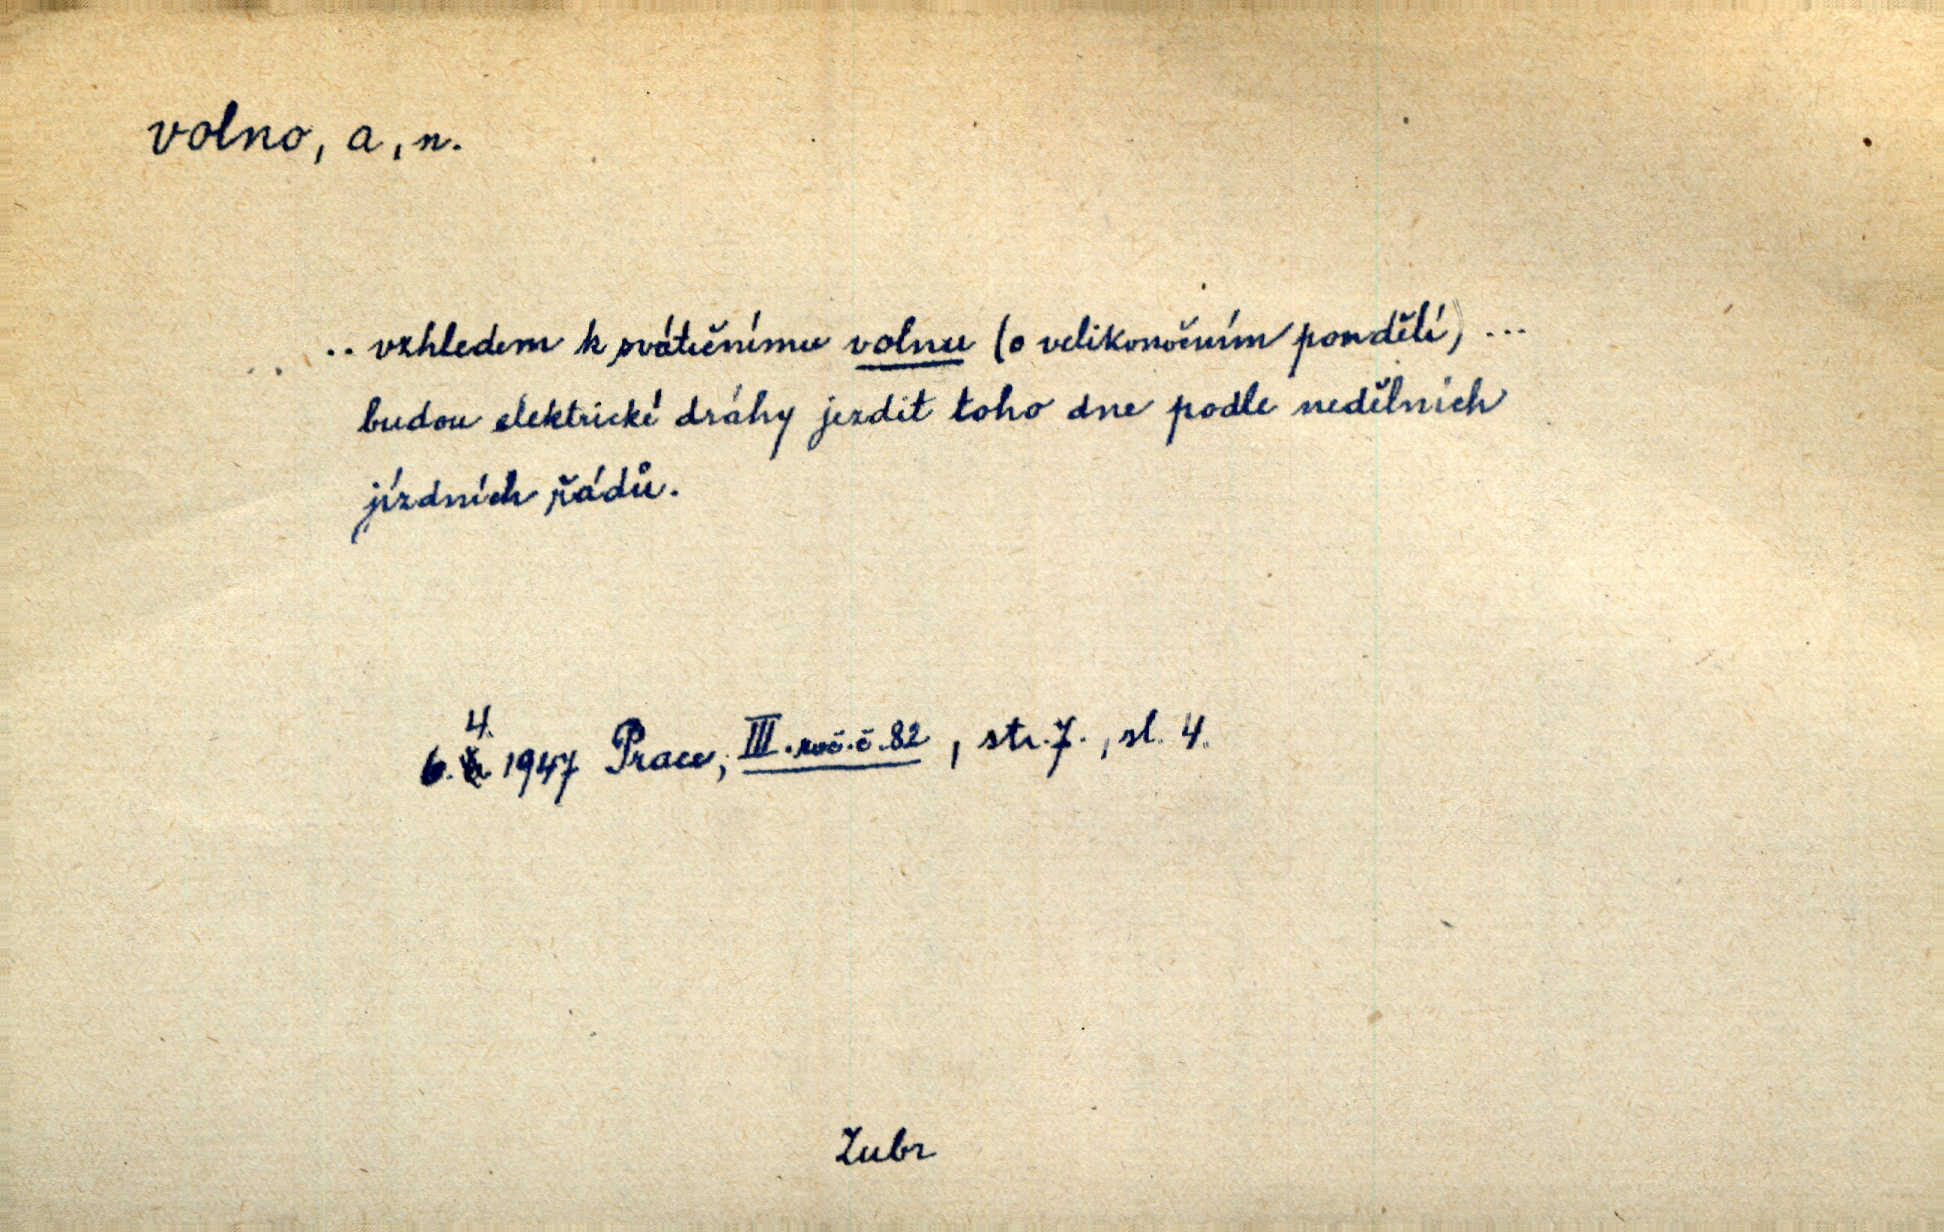 volno, a, n.
.. vzhledem k svátečnímu volnu (o velikonočním pondělí) ...
budou elektrické dráhy jezdit toho dne podle nedělních
jízdních řádů.
4.
6. 1947 Prace, III. roč. č. 82, str. 7., sl. 4.
Zubr